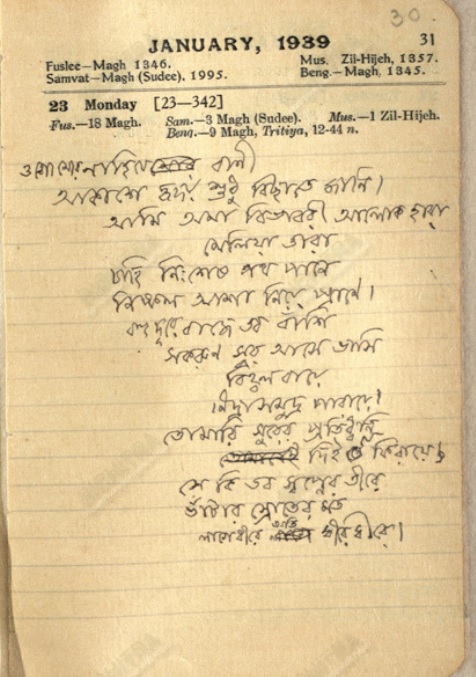 30.
JANUARY, 1939 31
Fuslee—Magh 1346. Mus. Zil-Hijeh, 1357.
Samvat—Magh (Sudee). 1995. Beng.—Magh, 1345.
23 Monday [23—342]
Fus.—18 Magh. Sam.—3 Magh (Sudee). Mus.—1 Zil-Hijeh.
Beng.—9 Magh, Tritiya, 12-44 n.
ওগো শোনো বাণী
আকাশে হৃদয় শুধু বিছাতে জানি।
আমি অমা বিভাবরী আলোক হারা
মেলিয়া তারা
চাহি নিঃশেষ পথ পানে
নিষ্ফল আশা নিয়ে প্রাণে।
বহু দূরে বাজে তব বাঁশি
সকরুণ সুর আসে ভাসি
বিহ্বল বায়ে
নিদ্রাসমুদ্র পারায়ে।
তোমারি সুরের প্রতিধ্বনি
দিই ফিরায়ে,
সে কি তব স্বপ্নের তীরে
ভাঁটার স্রোতের মত
লাগে ধীরে অতি ধীরে ধীরে।